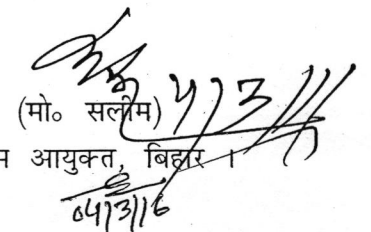 (मो० सलीम)
म आयुक्त, बिहार ।
04/3/16